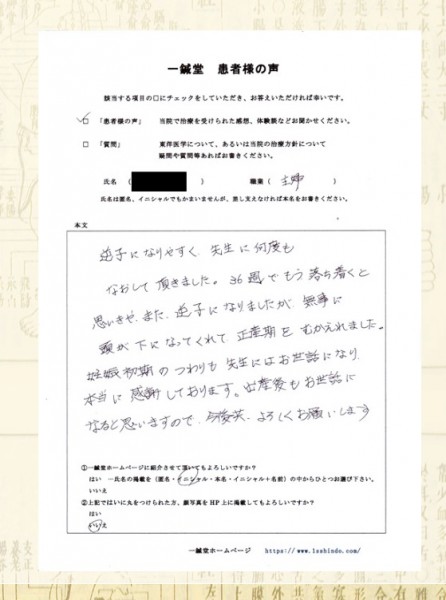 一鍼堂 患者様の声
該当する項目の□にチェックをしていただき、お答えいただければ幸いです。
□ 「患者様の声」 当院で治療を受けられた感想、体験談などお聞かせください。
□ 「質問」 東洋医学について、あるいは当院の治療方針について
疑問や質問等あればお書きください。
氏名 ( ) 職業 ( 主婦 )
氏名は匿名、イニシャルでもかまいませんが、差し支えなければ本名をお書きください。
本文
逆子になりやすく、先生に何度も
なおして頂きました。36週でもう落ち着くと
思いきや、また、逆子になりましたが、無事に
頭が下になってくれて、正産期をむかえれました。
妊娠初期のつわりも先生にはお世話になり、
本当に感謝しております。出産後もお世話に
なると思いますので、今後共、よろしくお願いします
①一鍼堂ホームページに紹介させて頂いてもよろしいですか？
はい →氏名の掲載を（匿名・イニシャル・本名・イニシャル＋名前）の中からひとつお選び下さい。
いいえ
②上記ではいに丸をつけられた方、顔写真をHP上に掲載してもよろしいですか？
はい
いいえ
一鍼堂ホームページ https://www.1sshindo.com/